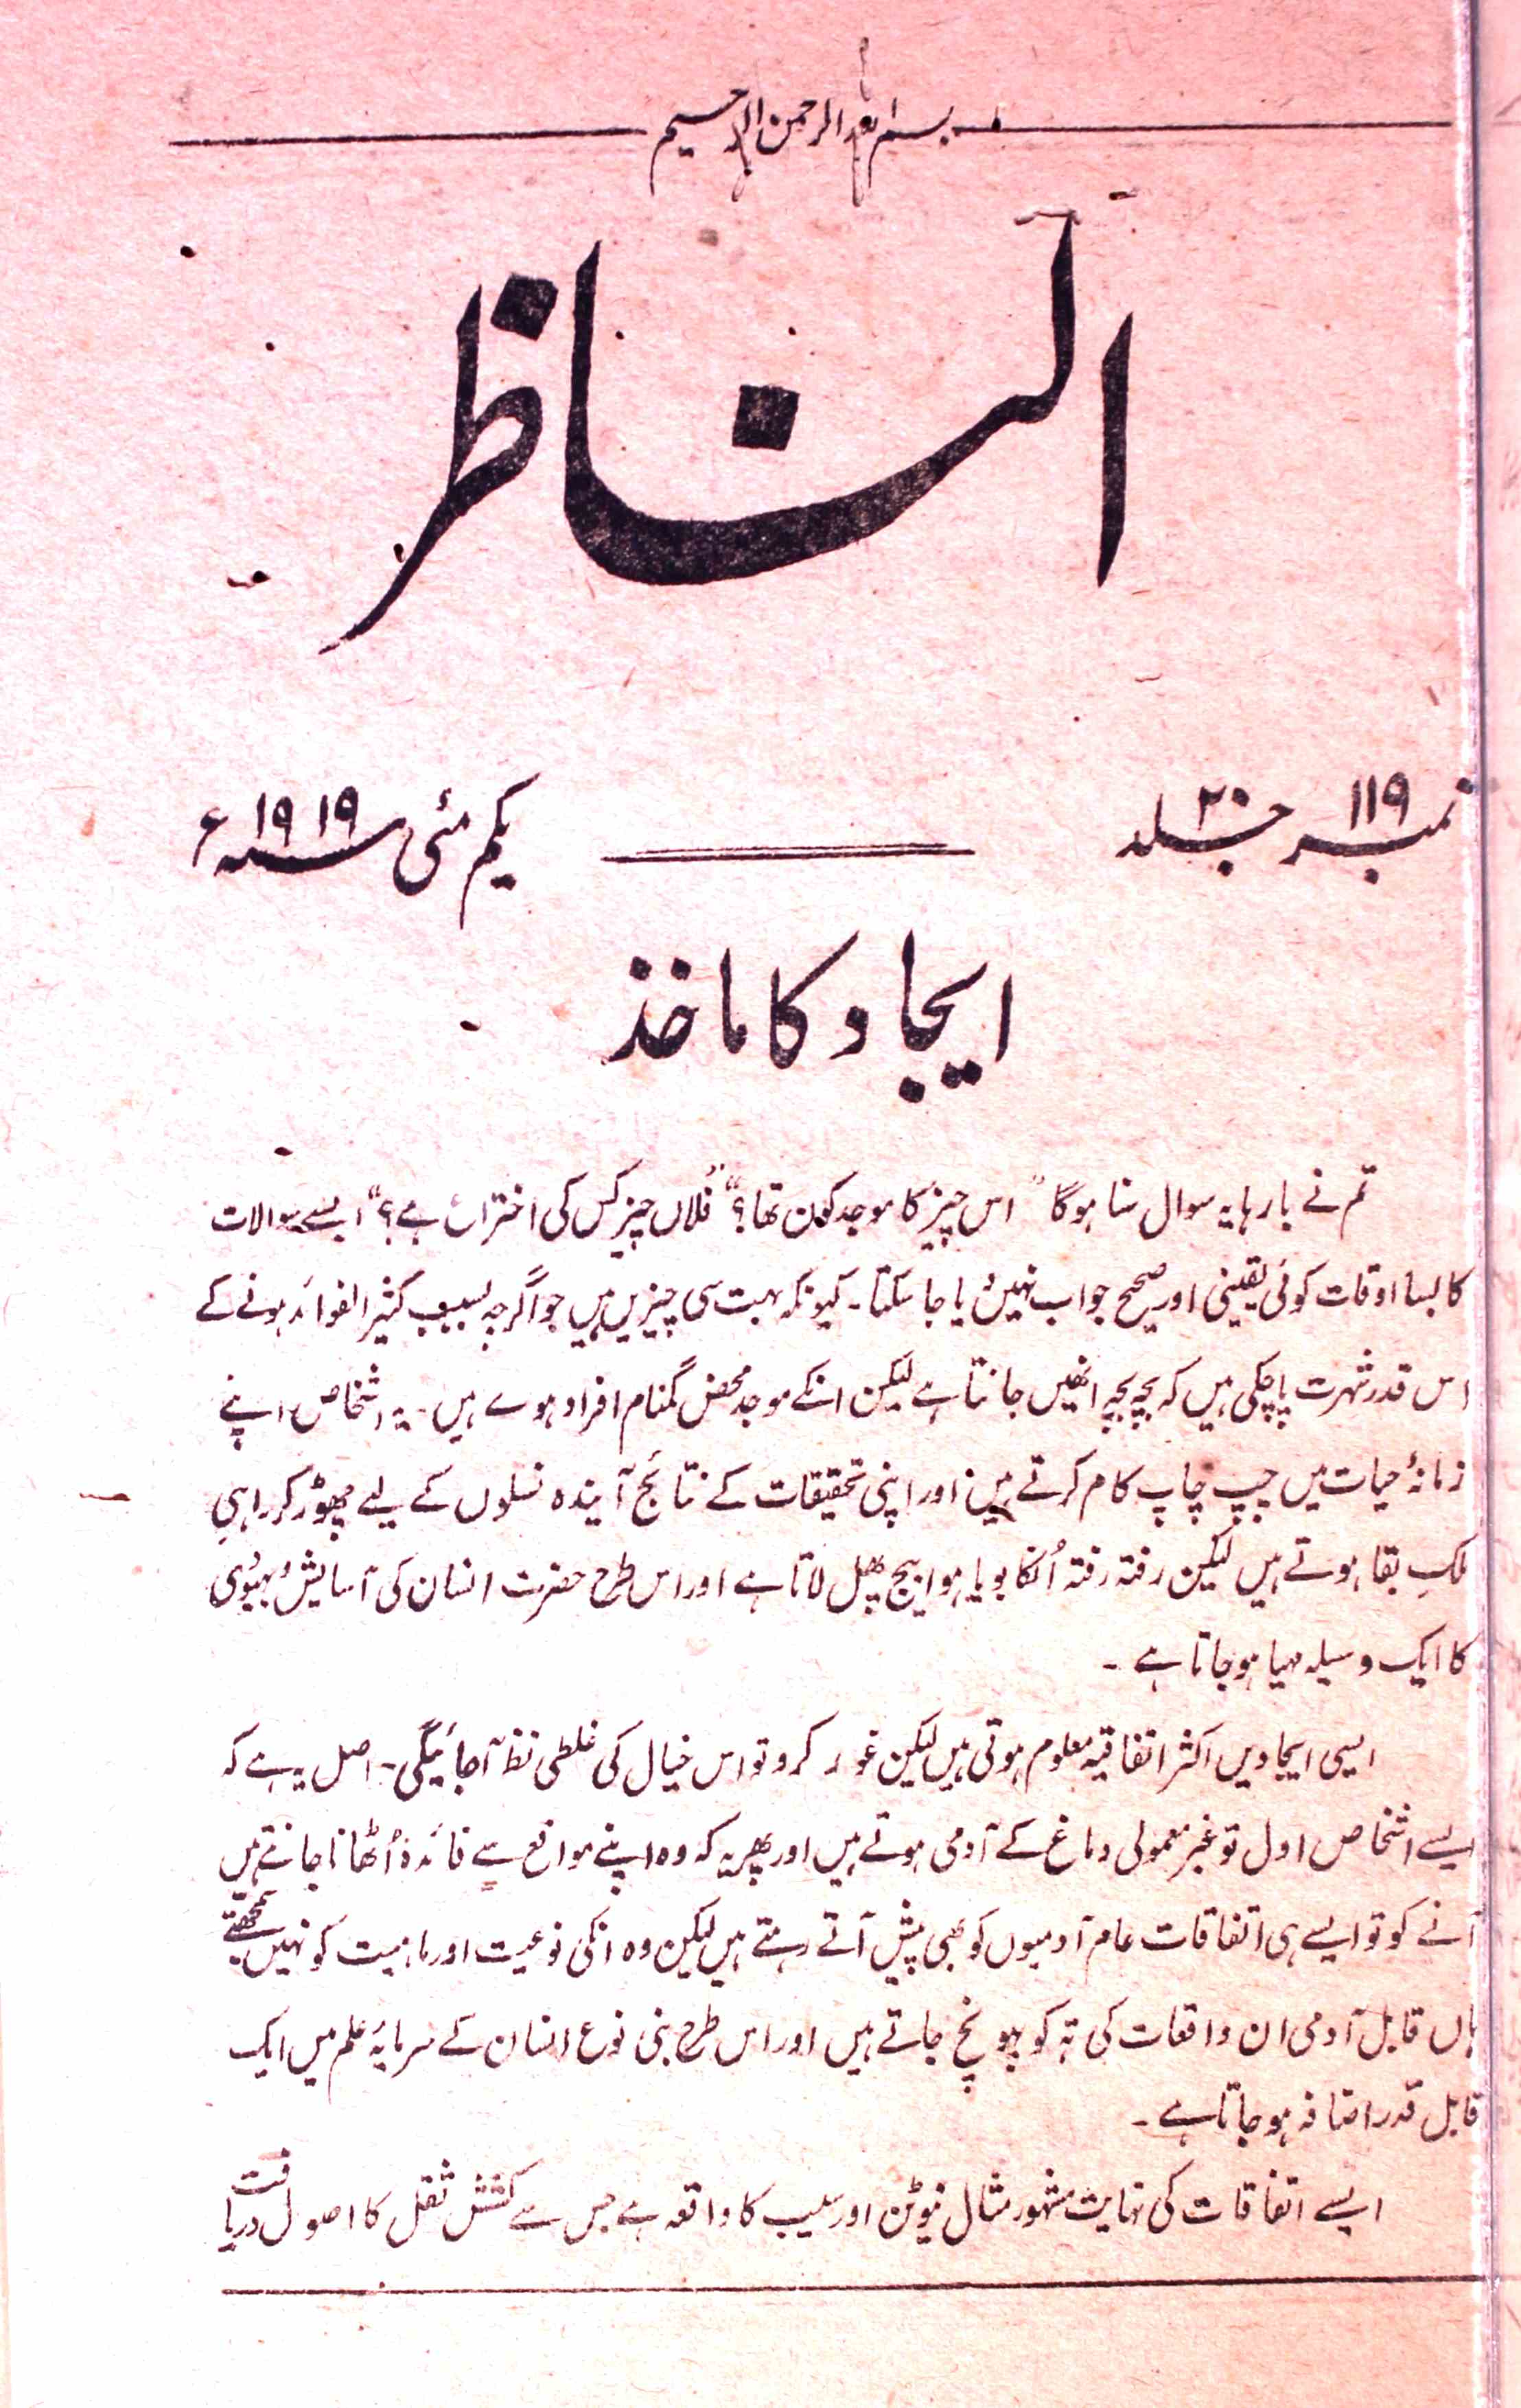 بسم اللہ الرحمن الرحیم
الناظر
نمبر ۱۱۹ جلد ۲۰
یکم مئی سنہ ۱۹۱۹ء
ایجاد کا ماخذ
تم نے بارہا یہ سوال سنا ہوگا "اس چیز کا موجد کون تھا؟" "فلاں چیز کس کی اختراع ہے؟" ایسے سوالات
کا بسا اوقات کوئی یقینی اور صحیح جواب نہیں دیا جا سکتا۔ کیونکہ بہت سی چیزیں ہیں جو اگرچہ بسبب کثیر الفوائد ہونے کے
اس قدر شہرت پاچکی ہیں کہ بچہ بچہ انھیں جانتا ہے لیکن انکے موجد محض گمنام افراد ہوے ہیں۔ یہ اشخاص اپنے
زمانۂ حیات میں چپ چاپ کام کرتے ہیں اور اپنی تحقیقات کے نتائج آیندہ نسلوں کے لیے چھوڑ کر راہیِ
ملکِ بقا ہوتے ہیں لیکن رفتہ رفتہ اُنکا بویا ہوا بیج پھل لاتا ہے اور اس طرح حضرت انسان کی آسایش و بہبودی
کا ایک وسیلہ مہیا ہو جاتا ہے۔
ایسی ایجادیں اکثر اتفاقیہ معلوم ہوتی ہیں لیکن غور کرو تو اس خیال کی غلطی نظر آجائیگی۔ اصل یہ ہے کہ
ایسے اشخاص اول تو غیر معمولی دماغ کے آدمی ہوتے ہیں اور پھر یہ کہ وہ اپنے مواقع سے فائدہ اُٹھانا جانتے ہیں
آنے کو تو ایسے ہی اتفاقات عام آدمیوں کو بھی پیش آتے رہتے ہیں لیکن وہ انکی نوعیت اور ماہیت کو نہیں سمجھتے
ہاں قابل آدمی ان واقعات کی تہ کو پہونچ جاتے ہیں اور اس طرح بنی نوع انسان کے سرمایۂ علم میں ایک
قابل قدر اضافہ ہو جاتا ہے۔
ایسے اتفاقات کی نہایت مشہور مثال نیوٹن اور سیب کا واقعہ ہے جس سے کشش ثقل کا اصول دریافت